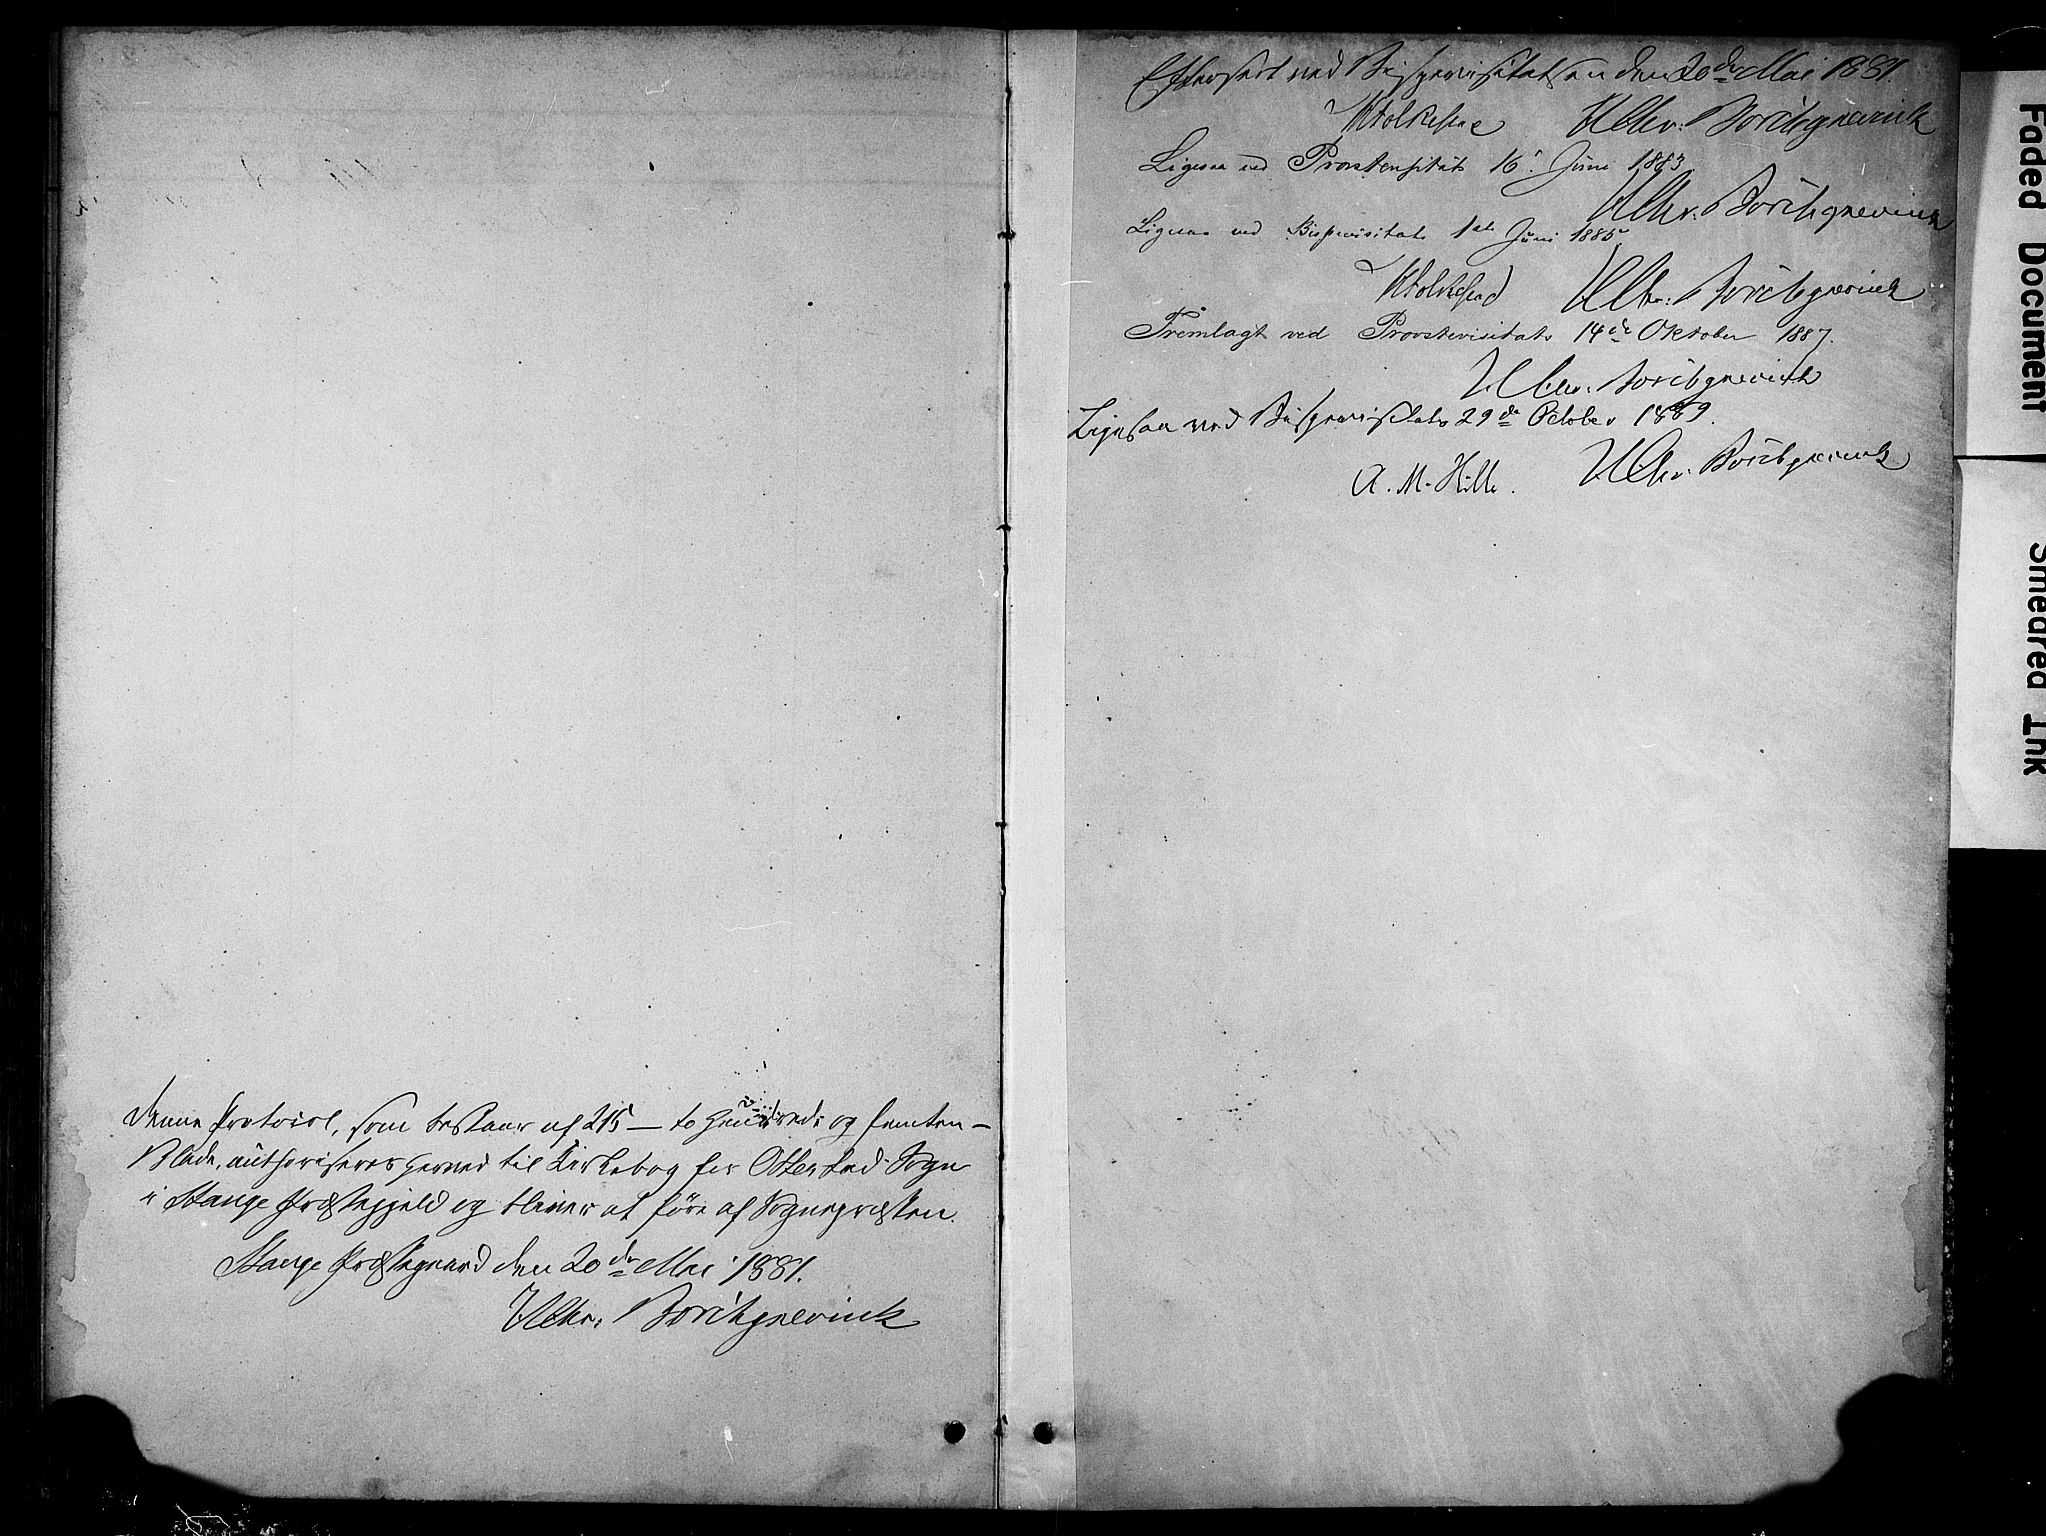 Denne Protocol, som bestaar af 215 — to hundrede og femten —
Blade, authoriseres herved til Kirkebog for Ottestad Sogn
i Stange Præstegjeld og bliver at føre af Sognepræsten.
Stange Præstegaard den 20de Mai 1881.
H Chr. Borchgrevink
Efterseet ved Bispevisitatsen den 20de Mai 1881
H Folkestad H Chr. Borchgrevink
Ligesaa ved Provstevisitats 16. Juni 1883.
H Chr. Borchgrevink
Ligesaa ved Bispevisitats 1ste Juni 1885
H Folkestad H Chr. Borchgrevink
Fremlagt ved Provstevisitats 14de Oktober 1887.
H Chr. Borchgrevink
Ligesaa ved Bispevisitats 29de October 1889.
A. M. Hille. H Chr. Borchgrevink
Faded Document
Smeared Ink